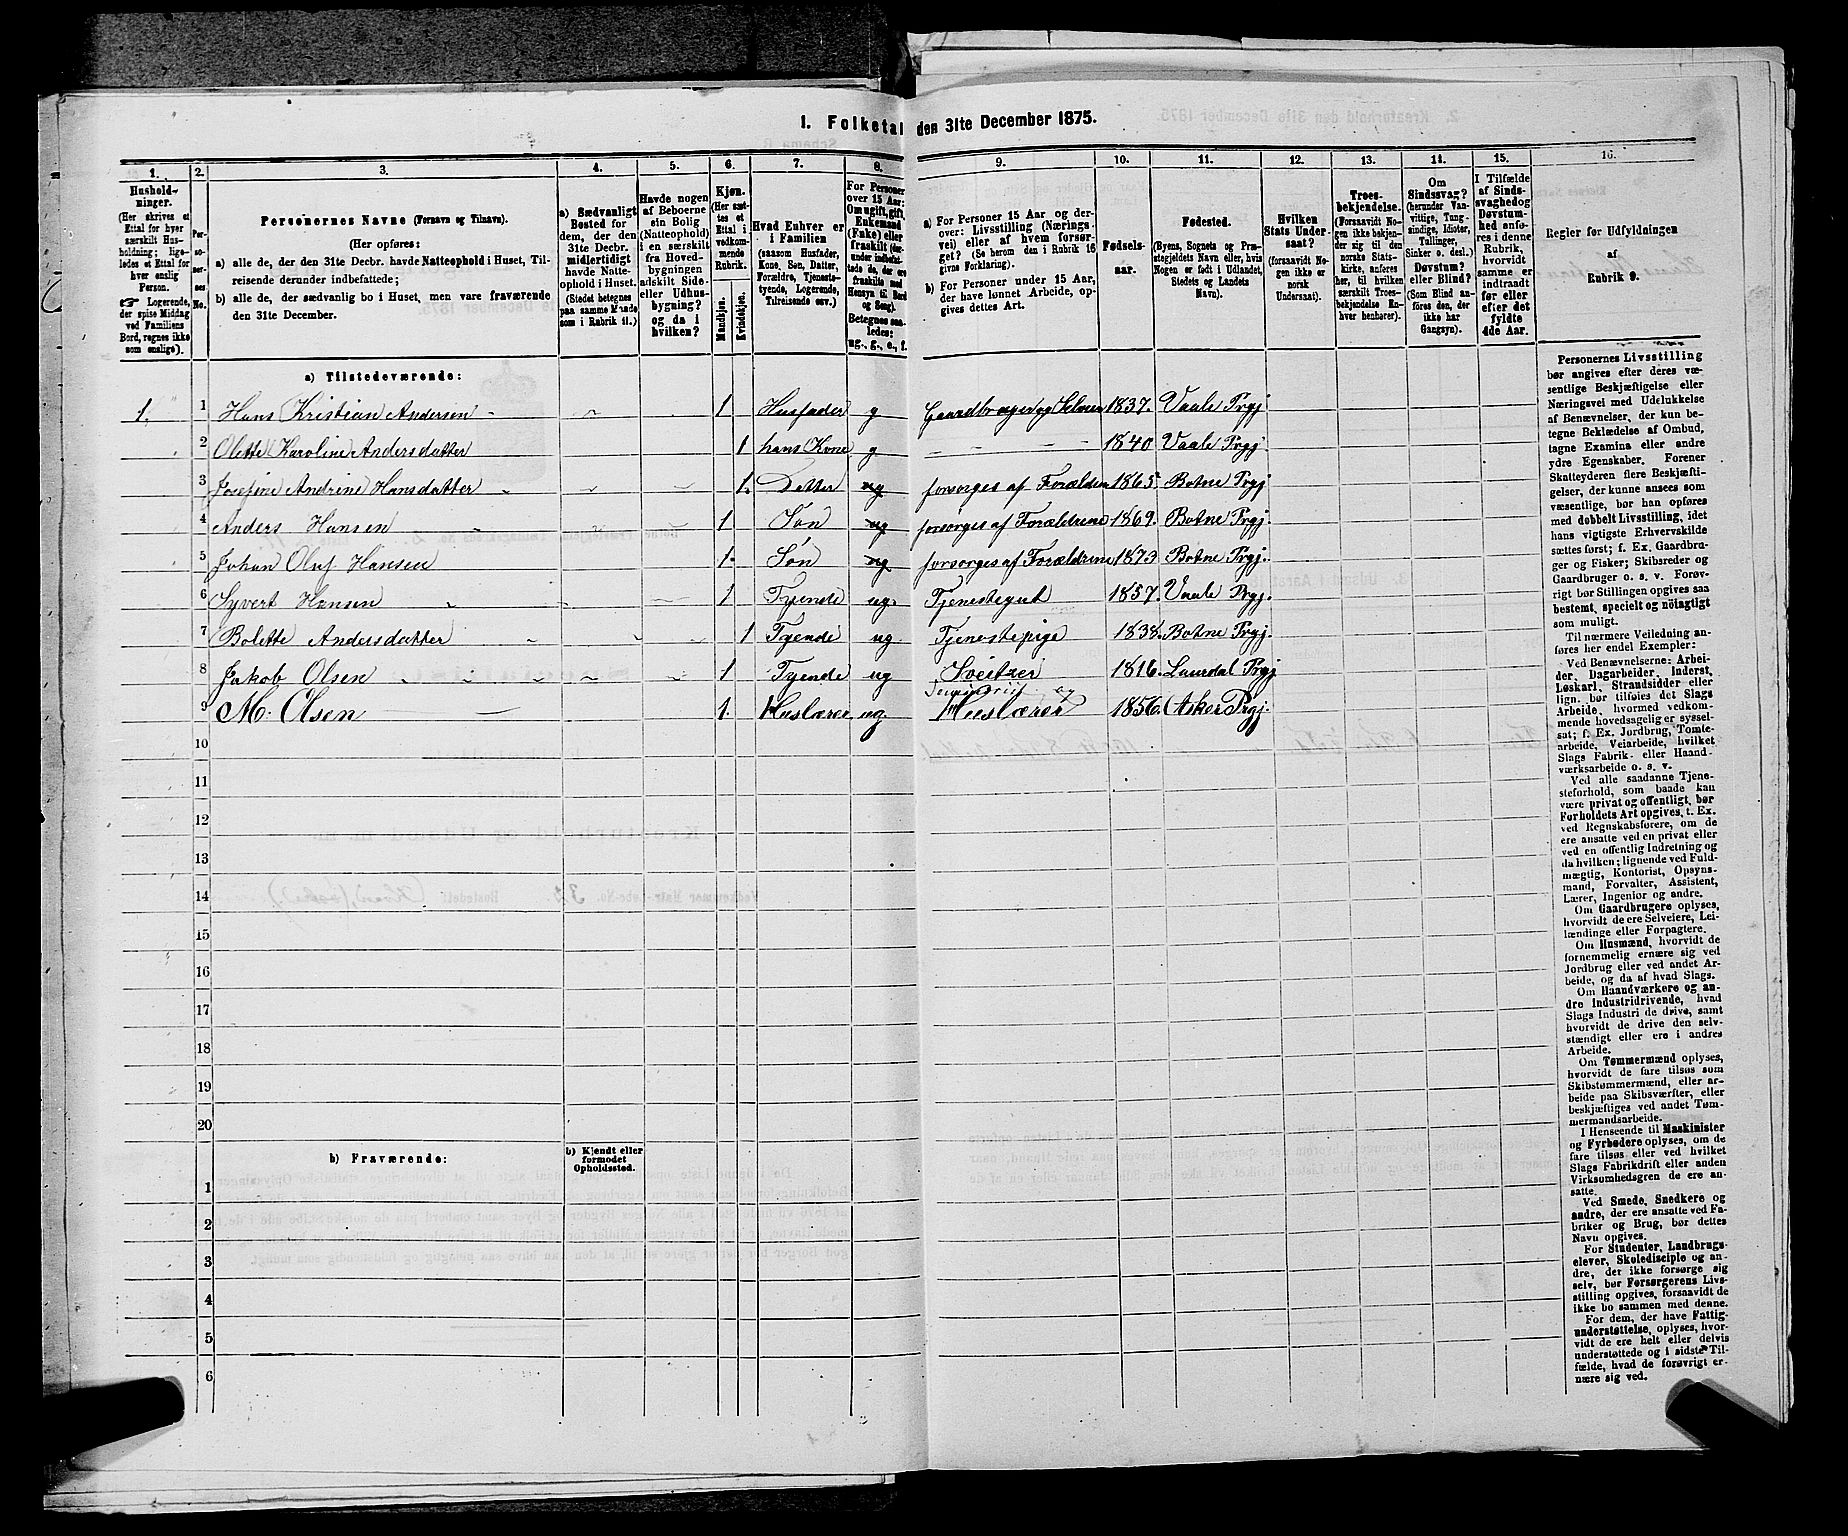 1. Folketal den 31te December 1875.
1. 2. 3. 4. 5. 6. 7. 8. 9. 10. 11. 12. 13. 14. 15. 16.
Hushold-
ninger.
(Her skrives et
Ettal for hver
særskilt Hus-
holdning; lige-
ledes et Ettal for
hver enslig
Person.
☞ Logerende,
der spise Middag
ved Familiens
Bord, regnes ikke
som enslige).
Per-
so-
ner-
nes
No.
Personernes Navne (Fornavn og Tilnavn).
(Her opføres:
a) alle de, der den 31te Decbr. havde Natteophold i Huset, Til-
reisende derunder indbefattede;
b) alle de, der sædvanlig bo i Huset, men vare fraværende
den 31te December.
a) Sædvanligt
Bosted for
dem, der den
31te Decbr.
midlertidigt
havde Natte-
ophold i Huset.
(Stedet betegnes
paa samme Maade
som i Rubrik 11.)
Havde nogen
af Beboerne
sin Bolig
(Natteophold)
i en særskilt
fra Hoved-
bygningen
adskilt Side-
eller Udhus-
bygning?
og da i
hvilken?
Kjøn.
(Her sæt-
tes et
Ettal i
vedkom-
mende
Rubrik.
Mandkjøn.
Kvindekjøn.
Hvad Enhver er
i Familien
(saasom Husfader,
Kone, Søn, Datter,
Forældre, Tjeneste-
tyende, Logerende,
Tilreisende osv.)
For Personer
over 15 Aar:
Om ugift, gift,
Enkemand
(Enke) eller
fraskilt (der-
under indbefat-
tede de, der ere
fraskilte med
Hensyn til Bord
og Seng).
Betegnes saa-
ledes:
ug., g., e., f.
a) For Personer 15 Aar og der-
over: Livsstilling (Nærings-
vei) eller af hvem forsør-
get? (Se herom den i Rubrik 16
givne Forklaring).
b) For Personer under 15 Aar,
der have lønnet Arbeide, op-
gives dettes Art.
Fødsels-
aar.
Fødested.
(Byens, Sognets og Præ-
stegjeldets Navn eller, hvis
Nogen er født i Udlandet,
Stedets og Landets
Navn).
Hvilken
Stats Under-
saat?
(forsaavidt No-
gen ikke er
norsk
Undersaat).
Troes-
bekjendelse.
(Forsaavidt No-
gen ikke bekjen-
der sig til den
norske Stats-
kirke, anføres
her, til hvilken
særskilt Troes-
bekjendelse En-
hver henhører).
Om
Sindssvag?
(herunder Van-
vittige, Tung-
sindige, Idioter,
Tullinger,
Sinker o. desl.)
Døvstum?
eller Blind?
(Som Blind an-
føres den, der
ikke har
Gangsyn).
I Tilfælde
af Sinds-
svaghed og
Døvstum-
hed anfø-
res i denne
Rubrik,
hvorvidt
samme er
indtraadt
før eller
efter det
fyldte
4de Aar.
Regler for Udfyldningen
af
Rubrik 9.
a) Tilstedeværende:
1. 1 Hans Kristian Andersen 1 Husfader g Gaardbruger og Selveier 1837. Vaale Prgj
2 Olette Karoline Andersdatter 1 hans Kone g 1840 Vaale Prgj
3 Josefine Andrine Hansdatter 1. Datter ug forsørges af Forældren 1865. Botne Prgj
4 Anders Hansen 1 Søn ug forsørges af Forældrene 1869. Botne Prgj.
5 Johan Oluf Hansen 1. Søn ug forsørges af Forældrene 1873 Botne Prgj.
6 Syvert Hansen 1 Tyende ug. Tjenestegut 1857. Vaale Prgj.
7 Bolette Andersdatter 1 Tyende ug Tjenestepige 1838. Botne Prgj.
8 Jakob Olsen 1 Tyende ug Sveitzer 1816. Laurdal Prgj
9 M. Olsen 1. Huslærer ug. Seminarist og Huslærer 1856. Asker Prgj.
10
11
12
13
14
15
16
17
18
19
20
b) Fraværende:
b) Kjendt eller
formodet
Opholdssted.
1
2
3
4
5
6
Personernes Livsstilling
bør angives efter deres væ-
sentlige Beskjæftigelse eller
Næringsvei med Udelukkelse
af Benævnelser, der kun be-
tegne Beklædelse af Ombud,
tagne Examina eller andre
ydre Egenskaber. Forener
Skatteyderen flere Beskjæfti-
gelser, der kunne ansees som
væsentlige, bør han opføres
med dobbelt Livsstilling, idet
hans vigtigste Erhvervskilde
sættes først; f. Ex. Gaardbru-
ger og Fisker; Skibsreder og
Gaardbruger o. s. v. Forøv-
rigt bør Stillingen opgives saa
bestemt, specielt og nøiagtigt
som muligt.
Til nærmere Veiledning an-
føres her endel Exempler:
Ved Benævnelserne: Arbei-
der, Dagarbeider, Inderst,
Løskarl, Strandsidder eller
lign. bør tilføies det Slags
Arbeide, hvormed vedkom-
mende hovedsagelig er syssel-
sat; f. Ex. Jordbrug, Tomte-
arbeide, Veiarbeide, hvilket
Slags Fabrik- eller Haand-
værksarbeide o. s. v.
Ved alle saadanne Tjene-
steforhold, som baade kan
være privat og offentligt, bør
Forholdets Art opgives, t. Ex.
ved Regnskabsførere, om de
ere ansatte ved en privat eller
ved en offentlig Indretning og
da hvilken; lignende ved Fuld-
mægtig, Kontorist, Opsyns-
mand, Forvalter, Assistent,
Lærer, Ingeniør og andre.
Om Gaardbrugere oplyses,
hvorvidt de ere Selveiere, Lei-
lændinge eller Forpagtere.
Om Husmænd, hvorvidt de
fornemmelig ernære sig ved
Jordbrug eller ved andet Ar-
beide, og da af hvad Slags.
Om Haandværkere og an-
dre Industridrivende, hvad
Slags Industri de drive, samt
hvorvidt de drive den selv-
stændigt eller ere i andres
Arbeide.
Om Tømmermænd oplyses,
hvorvidt de fare tilsøs som
Skibstømmermænd, eller ar-
beide paa Skibsværfter, eller
beskjæftiges ved andet Tøm-
mermandsarbeide.
I Henseende til Maskinister
og Fyrbødere oplyses, om de
fare tilsøs eller ved hvilket
Slags Fabrikdrift eller anden
Virksomhedsgren de ere an-
satte.
Ved Smede, Snedkere og
andre, der ere ansatte ved Fa-
briker og Brug, bør dettes
Navn opgives.
For Studenter, Landbrugs-
elever, Skoledisciple og an-
dre, der ikke forsørge sig
selv, bør Forsørgerens Livs-
stilling opgives, forsaavidt de
ikke bo sammen med denne.
For dem, der have Fattig-
understøttelse, oplyses, hvor-
vidt de ere helt eller delvis
understøttede og i sidste Til-
fælde, hvad de forøvrigt er-
nære sig ved.